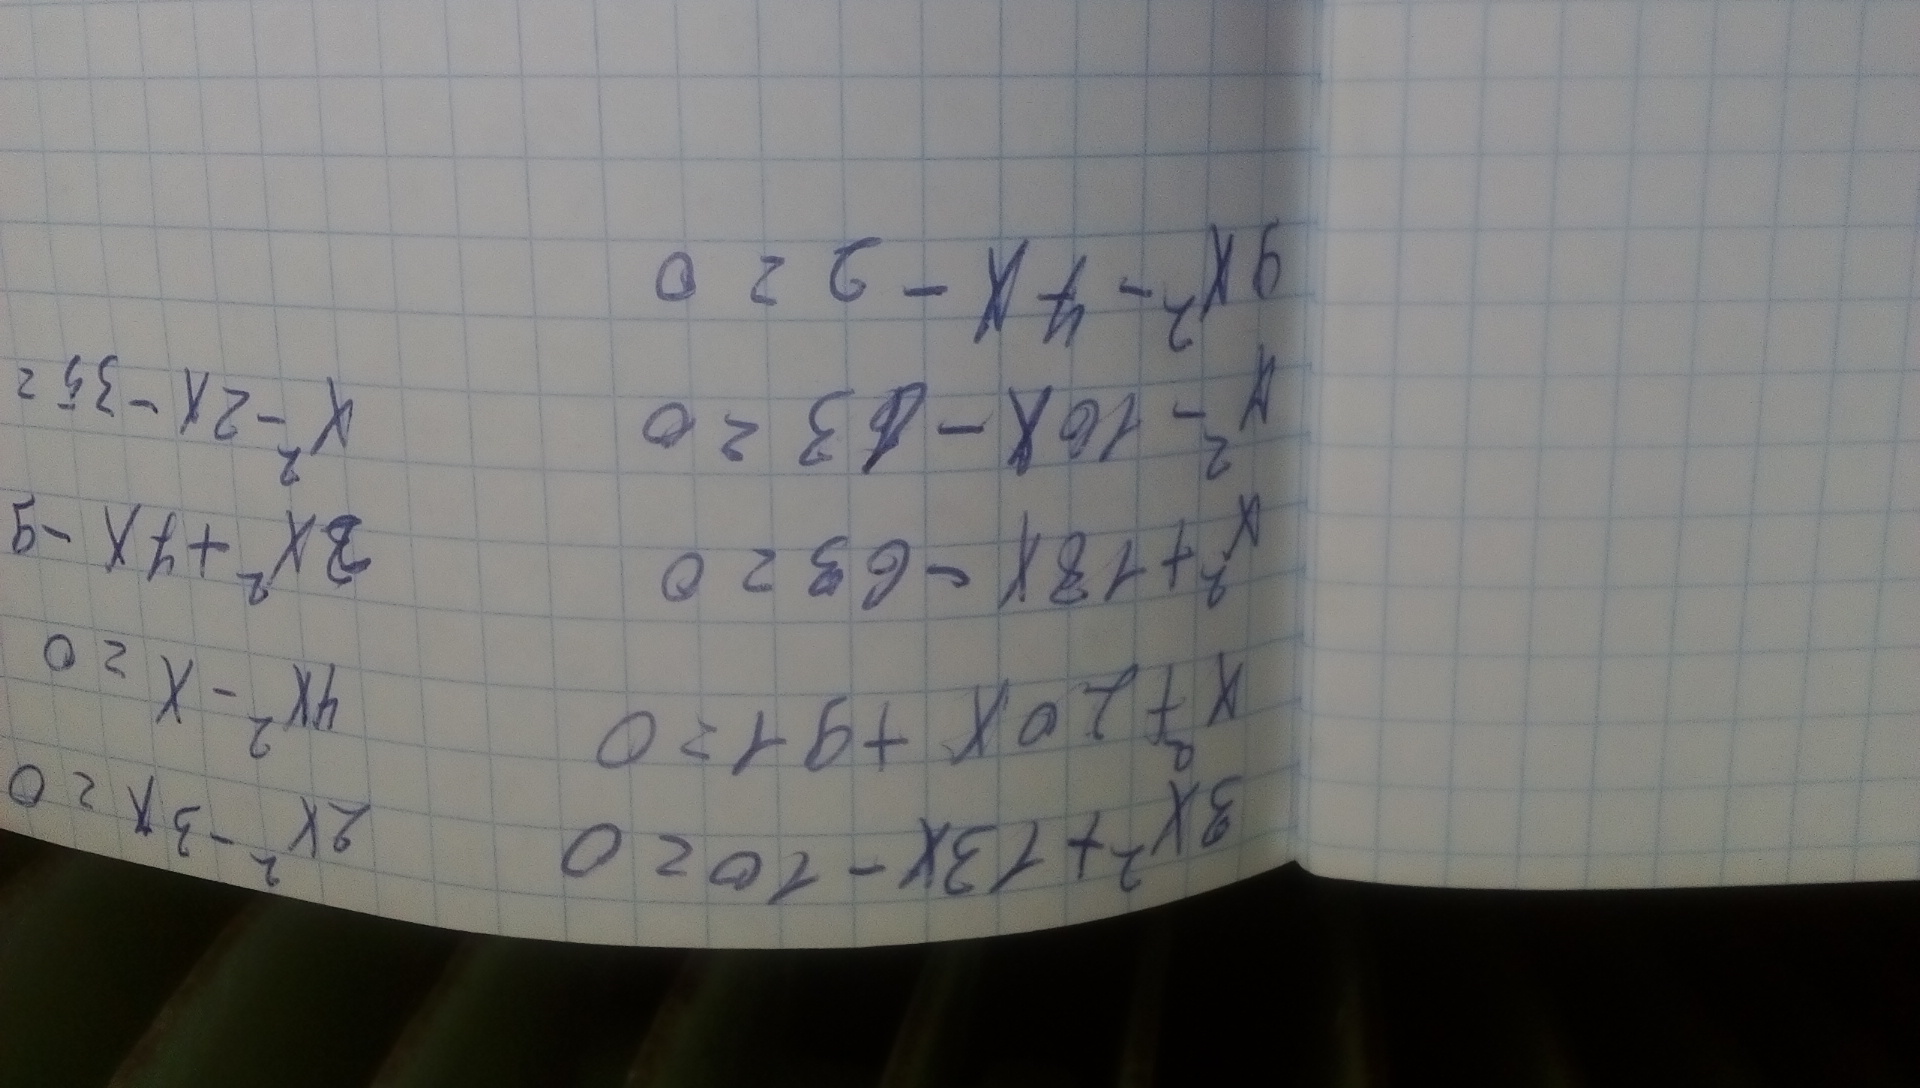 3x²+13x-10=0
x²+20x+91=0
x²+18x-63=0
x²-16x-63=0
9x²-7x-2=0
2x²-3x=0
4x²-x=0
2x²+7x-9
x²-2x-35=